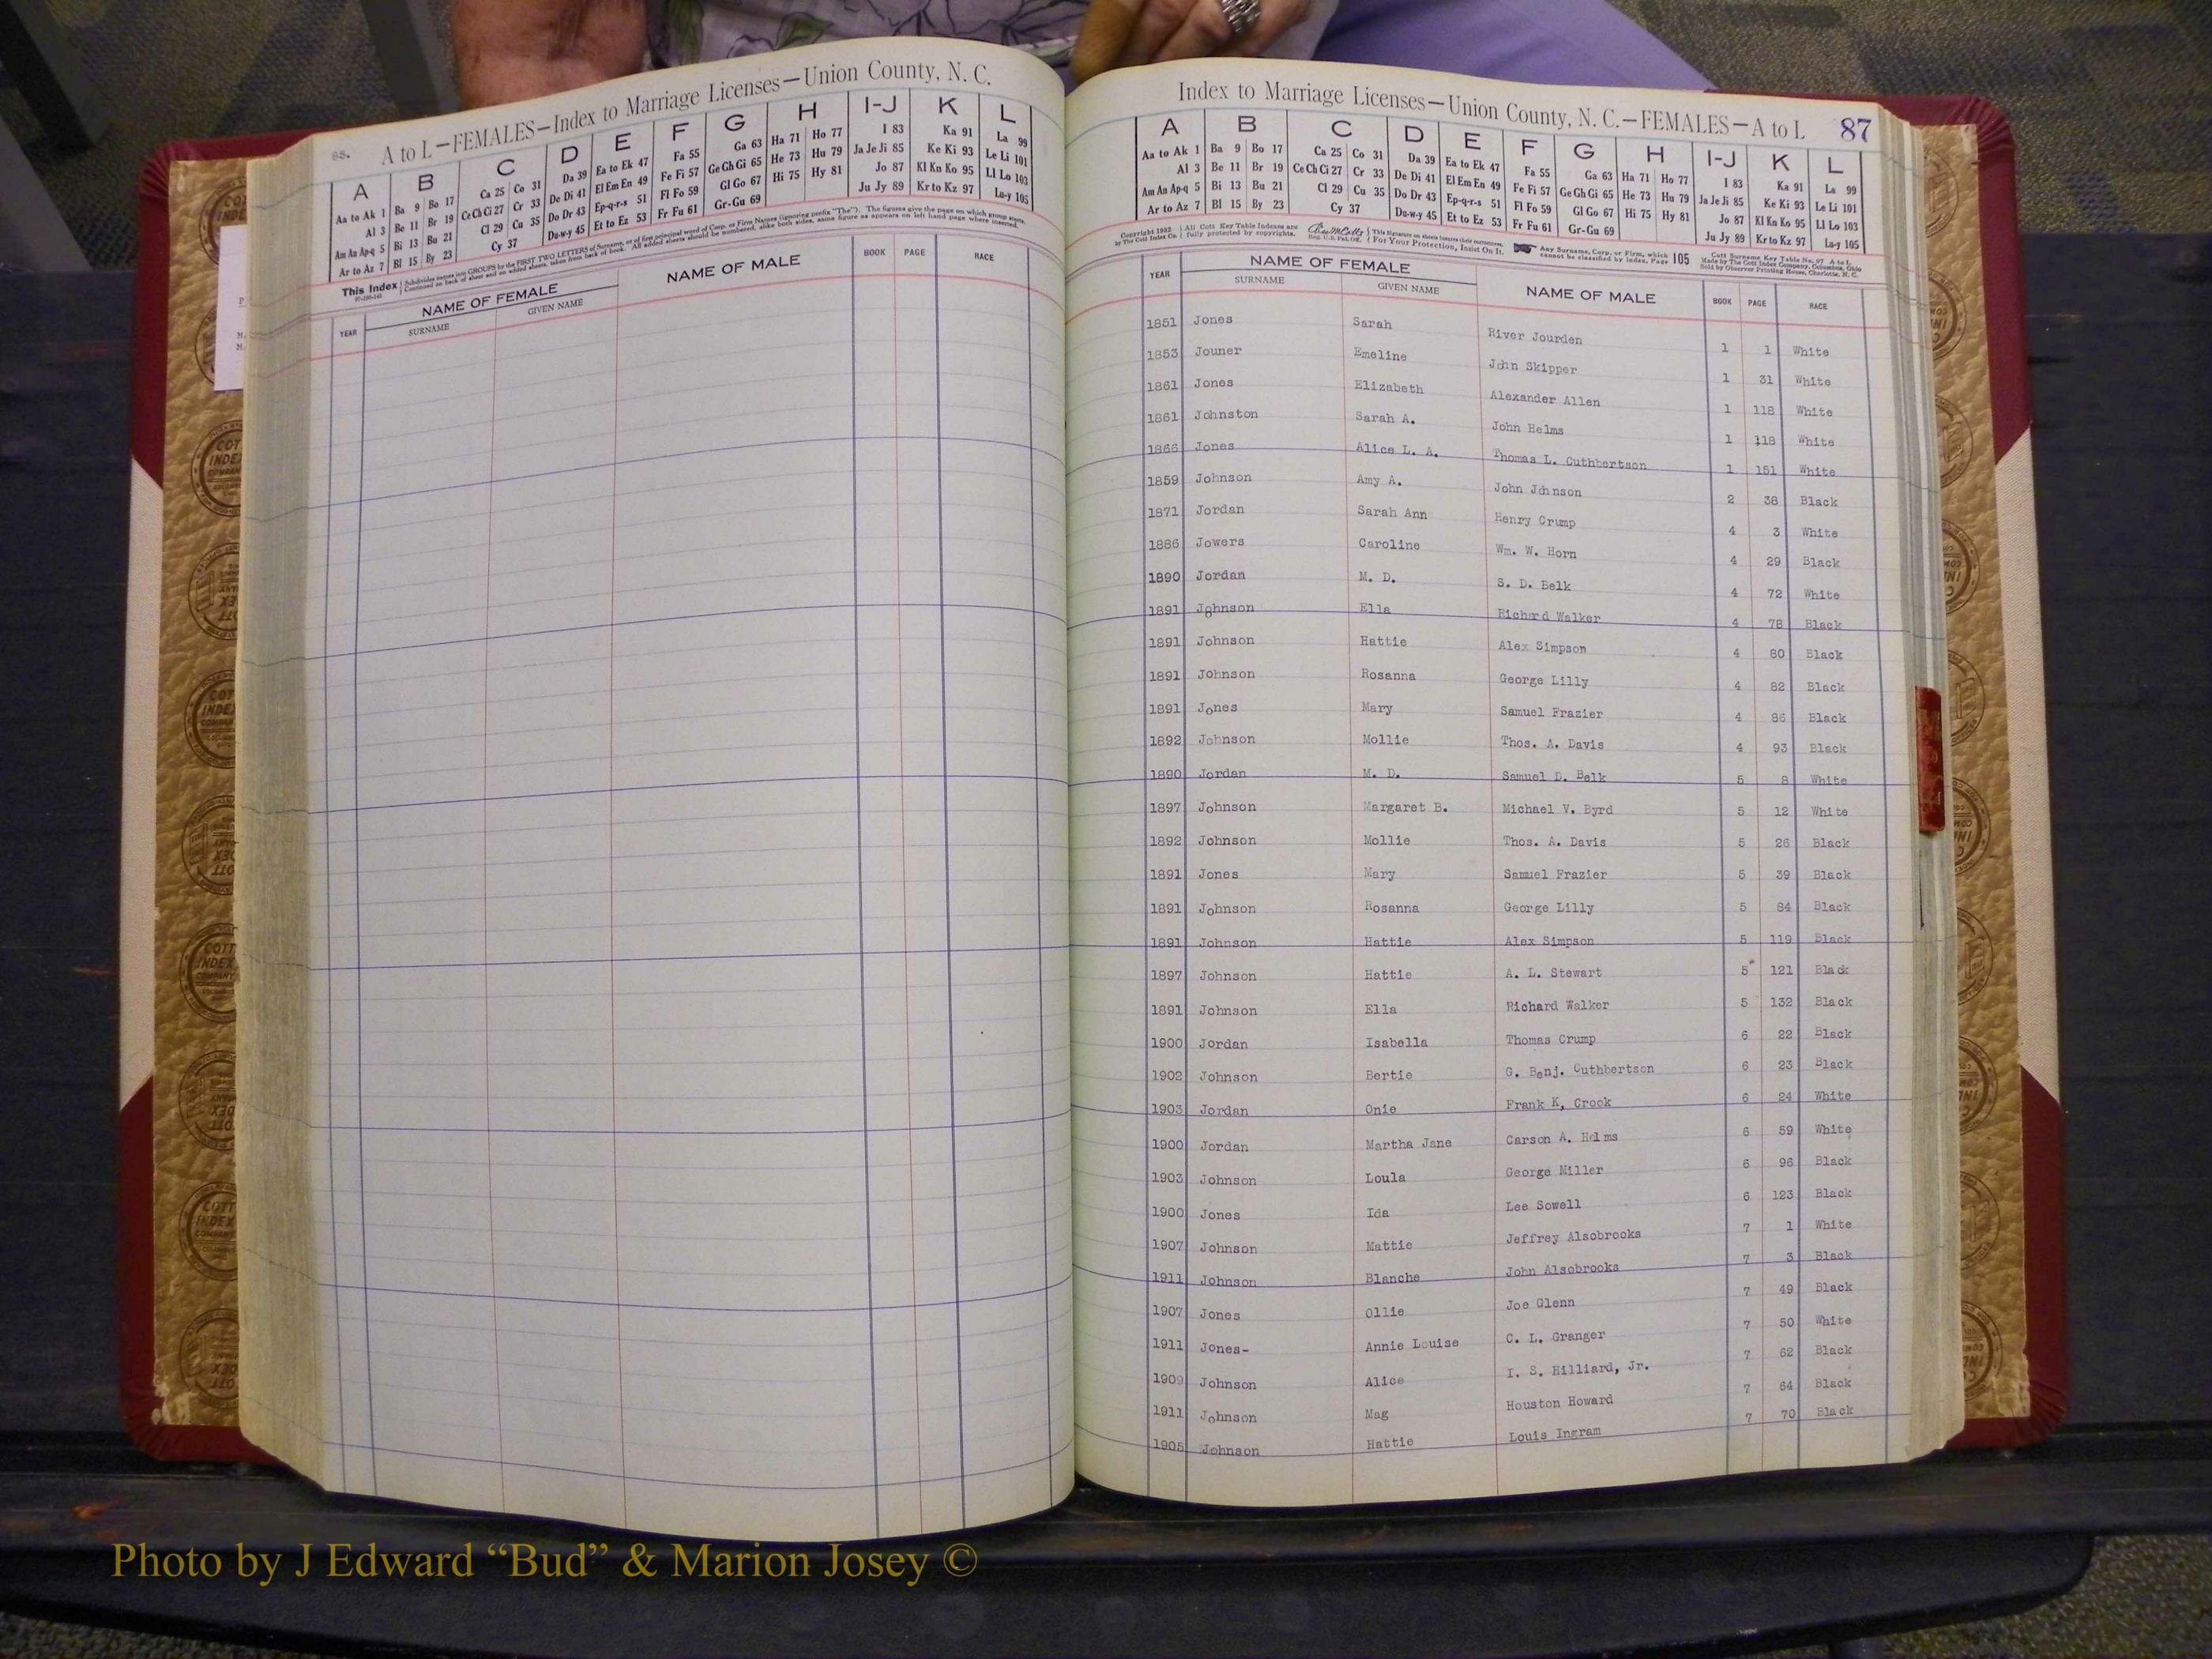 85.
A to L—FEMALES—Index to Marriage Licenses—Union County, N. C.
A B C D E F G H I-J K L
Aa to Ak 1 Ba 9 Bo 17 Ca 25 Co 31 Da 39 Ea to Ek 47 Fa 55 Ga 63 Ha 71 Ho 77 I 83 Ka 91 La 99
Al 3 Be 11 Br 19 Ce Ch Ci 27 Cr 33 De Di 41 El Em En 49 Fe Fi 57 Ge Gh Gi 65 He 73 Hu 79 Ja Je Ji 85 Ke Ki 93 Le Li 101
Am An Ap-q 5 Bi 13 Bu 21 Cl 29 Cu 35 Do Dr 43 Ep-q-r-s 51 Fl Fo 59 Gl Go 67 Hi 75 Hy 81 Jo 87 Kl Kn Ko 95 Ll Lo 103
Ar to Az 7 Bl 15 By 23 Cy 37 Du-w-y 45 Et to Ez 53 Fr Fu 61 Gr-Gu 69 Ju Jy 89 Kr to Kz 97 Lu-y 105
This Index Subdivides names into GROUPS by the FIRST TWO LETTERS of Surname, or of first principal word of Corp. or Firm Names (ignoring prefix "The"). The figures give the page on which group starts.
Continued on back of sheet and on added sheets, taken from back of book. All added sheets should be numbered, alike both sides, same figure as appears on left hand page where inserted.
YEAR NAME OF FEMALE NAME OF MALE BOOK PAGE RACE
SURNAME GIVEN NAME
Index to Marriage Licenses—Union County, N. C.—FEMALES—A to L 87
A B C D E F G H I-J K L
Aa to Ak 1 Ba 9 Bo 17 Ca 25 Co 31 Da 39 Ea to Ek 47 Fa 55 Ga 63 Ha 71 Ho 77 I 83 Ka 91 La 99
Al 3 Be 11 Br 19 Ce Ch Ci 27 Cr 33 De Di 41 El Em En 49 Fe Fi 57 Ge Gh Gi 65 He 73 Hu 79 Ja Je Ji 85 Ke Ki 93 Le Li 101
Am An Ap-q 5 Bi 13 Bu 21 Cl 29 Cu 35 Do Dr 43 Ep-q-r-s 51 Fl Fo 59 Gl Go 67 Hi 75 Hy 81 Jo 87 Kl Kn Ko 95 Ll Lo 103
Ar to Az 7 Bl 15 By 23 Cy 37 Du-w-y 45 Et to Ez 53 Fr Fu 61 Gr-Gu 69 Ju Jy 89 Kr to Kz 97 Lu-y 105
Copyright 1932 by The Cott Index Co. All Cott Key Table Indexes are fully protected by copyrights. For Your Protection, Insist On It. Any Surname, Corp. or Firm, which cannot be classified by index, Page 105
YEAR NAME OF FEMALE NAME OF MALE BOOK PAGE RACE
SURNAME GIVEN NAME
1851 Jones Sarah River Jourden 1 1 White
1853 Jouner Emeline John Skipper 1 31 White
1861 Jones Elizabeth Alexander Allen 1 118 White
1861 Johnston Sarah A. John Helms 1 118 White
1866 Jones Alice L. A. Thomas L. Cuthbertson 1 151 White
1859 Johnson Amy A. John Johnson 2 38 Black
1871 Jordan Sarah Ann Henry Crump 4 3 White
1886 Jowers Caroline Wm. W. Horn 4 29 Black
1890 Jordan M. D. S. D. Belk 4 72 White
1891 Johnson Ella Richard Walker 4 78 Black
1891 Johnson Hattie Alex Simpson 4 80 Black
1891 Johnson Rosanna George Lilly 4 82 Black
1891 Jones Mary Samuel Frazier 4 86 Black
1892 Johnson Mollie Thos. A. Davis 4 93 Black
1890 Jordan M. D. Samuel D. Belk 5 8 White
1897 Johnson Margaret B. Michael V. Byrd 5 12 White
1892 Johnson Mollie Thos. A. Davis 5 26 Black
1891 Jones Mary Samuel Frazier 5 39 Black
1891 Johnson Rosanna George Lilly 5 84 Black
1891 Johnson Hattie Alex Simpson 5 119 Black
1897 Johnson Hattie A. L. Stewart 5 121 Black
1891 Johnson Ella Richard Walker 5 132 Black
1900 Jordan Isabella Thomas Crump 6 22 Black
1902 Johnson Bertie G. Benj. Cuthbertson 6 23 Black
1903 Jordan Onie Frank K, Crook 6 24 White
1900 Jordan Martha Jane Carson A. Helms 6 59 White
1903 Johnson Loula George Miller 6 96 Black
1900 Jones Ida Lee Sowell 6 123 Black
1907 Johnson Mattie Jeffrey Alsobrooks 7 1 White
1911 Johnson Blanche John Alsobrooks 7 3 Black
1907 Jones Ollie Joe Glenn 7 49 Black
1911 Jones- Annie Louise C. L. Granger 7 50 White
1909 Johnson Alice I. S. Hilliard, Jr. 7 62 Black
1911 Johnson Mag Houston Howard 7 64 Black
1905 Johnson Hattie Louis Ingram 7 70 Black
Photo by J Edward “Bud” & Marion Josey ©